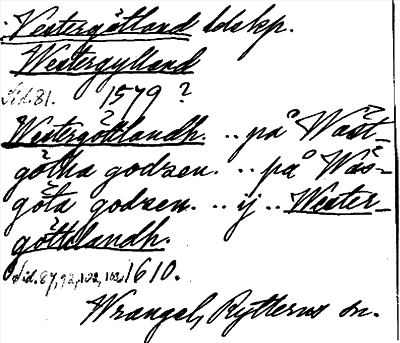 Vestergötland ldskp.
Westergylland
Sid. 81. 1579 ?
Westergöttlandh. .. på Wäst-
götha godzen. .. på Wäs-
göta godzen. .. ij .. Wester-
göttlandh.
Sid. 87, 92, 102, 102, 1610.
Wrangel, Rytterus